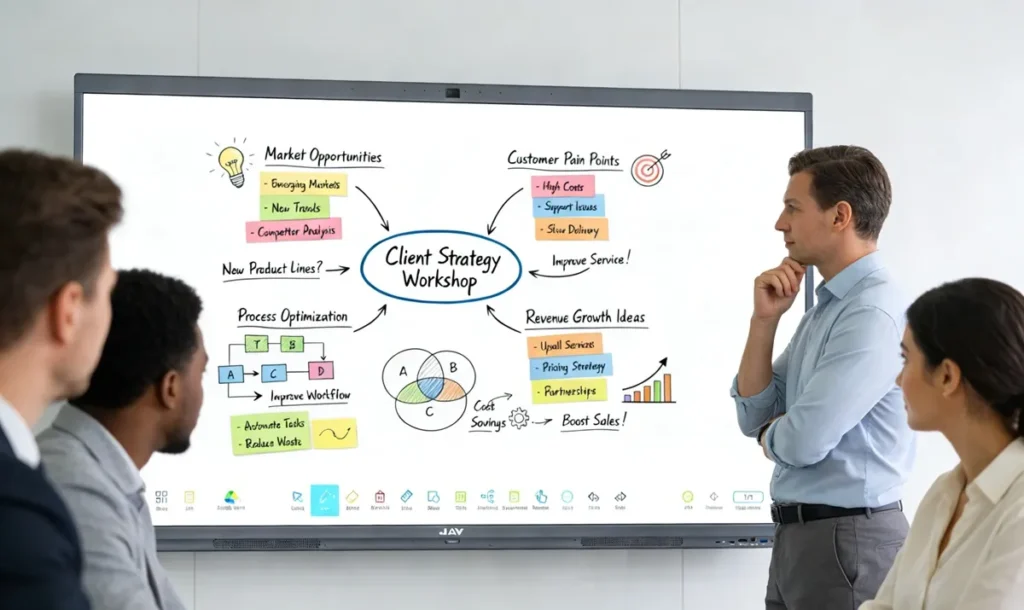 Market Opportunities
- Emerging Markets
- New Trends
- Competitor Analysis
New Product Lines?
Customer Pain Points
- High Costs
- Support Issues
- Slow Delivery
Improve Service!
Client Strategy
Workshop
Process Optimization
T
B
A
C
D
Improve Workflow
- Automate Tasks
- Reduce Waste
A
B
C
Revenue Growth Ideas
- Upsell Services
- Pricing Strategy
- Partnerships
Cost
Savings
Boost Sales!
1/1
JAV